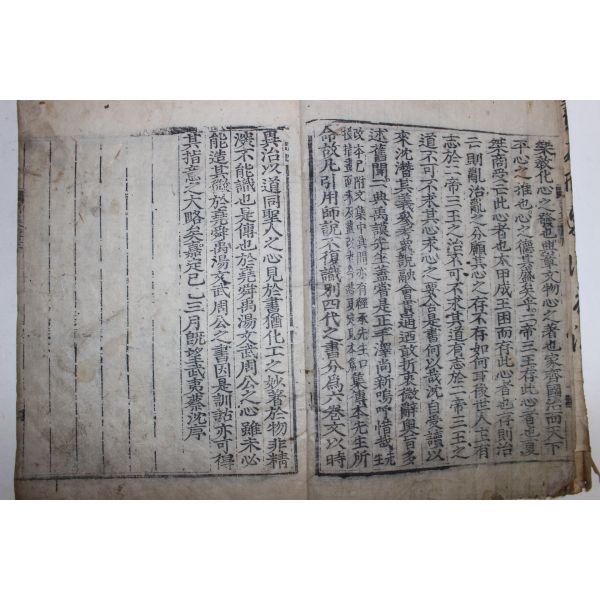 樂教化心之發也典章文物心之著也家齊國治而天下
平心之推也心之德其盛矣乎二帝三王存此心者也夏
桀商受亡此心者也太甲成王困而存此心者也存則治
亡則亂治亂之分顧其心之存不存如何耳後世人主有
志於二帝三王之治不可不求其道有志於二帝三王之
道不可不求其心求心之要舍是書何以哉沈自受讀以
來沈潛其義參考衆說融會貫通迺敢折衷微辭奧旨多
述舊聞二典禹謨先生蓋嘗是正手澤尚新嗚呼惜哉先生
改本已附文集中其間亦有經承先生口授指畫而未及盡改者今悉更定見本篇集傳本先生所
命故凡引用師說不復識別四代之書分爲六卷文以時
異治以道同聖人之心見於書猶化工之妙著於物非精
深不能識也是傳也於堯舜禹湯文武周公之心雖未必
能造其微於堯舜禹湯文武周公之書因是訓詁亦可得
其指意之大略矣嘉定己巳三月旣望武夷蔡沈序